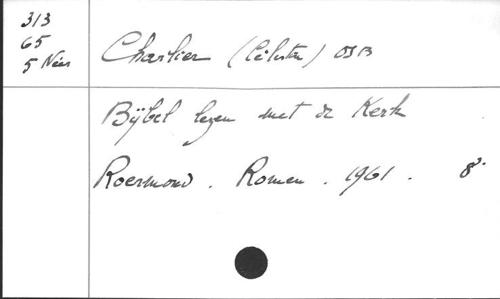 313
65
5 Néer
Charlier (Célestin) OSB
Bijbel lezen met de Kerk
Roermond. Romen. 1961. 8°.